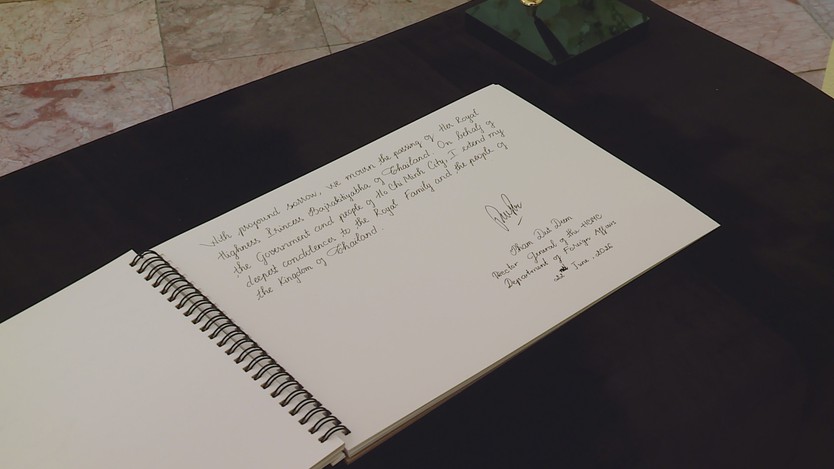 With profound sorrow, we mourn the passing of Her Royal
Highness Princess Bajrakitiyabha of Thailand. On behalf of
the Government and people of Ho Chi Minh City, I extend my
deepest condolences to the Royal Family and the people of
the Kingdom of Thailand.
Pham Dut Diem
Director General of the HCMC
Department of Foreign Affairs
22nd June, 2026